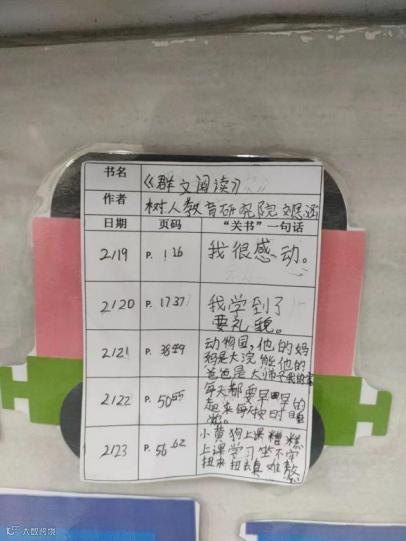 书名 《群文阅读》
作者 树人教育研究院
日期 页码 “关书”一句话
2/19 P. 1 16 我很感动。
2/20 P. 17 37 我学到了
要礼貌。
2/21 P. 38 49 动物园，他的妈
妈是大浣熊他的
爸爸是大师
2/22 P. 50 55 每天都要早早的
起来每天按时睡
2/23 P. 56 62 小黄狗上课糟糕
上课学习坐不牢
扭来扭去真难教
大数跨境